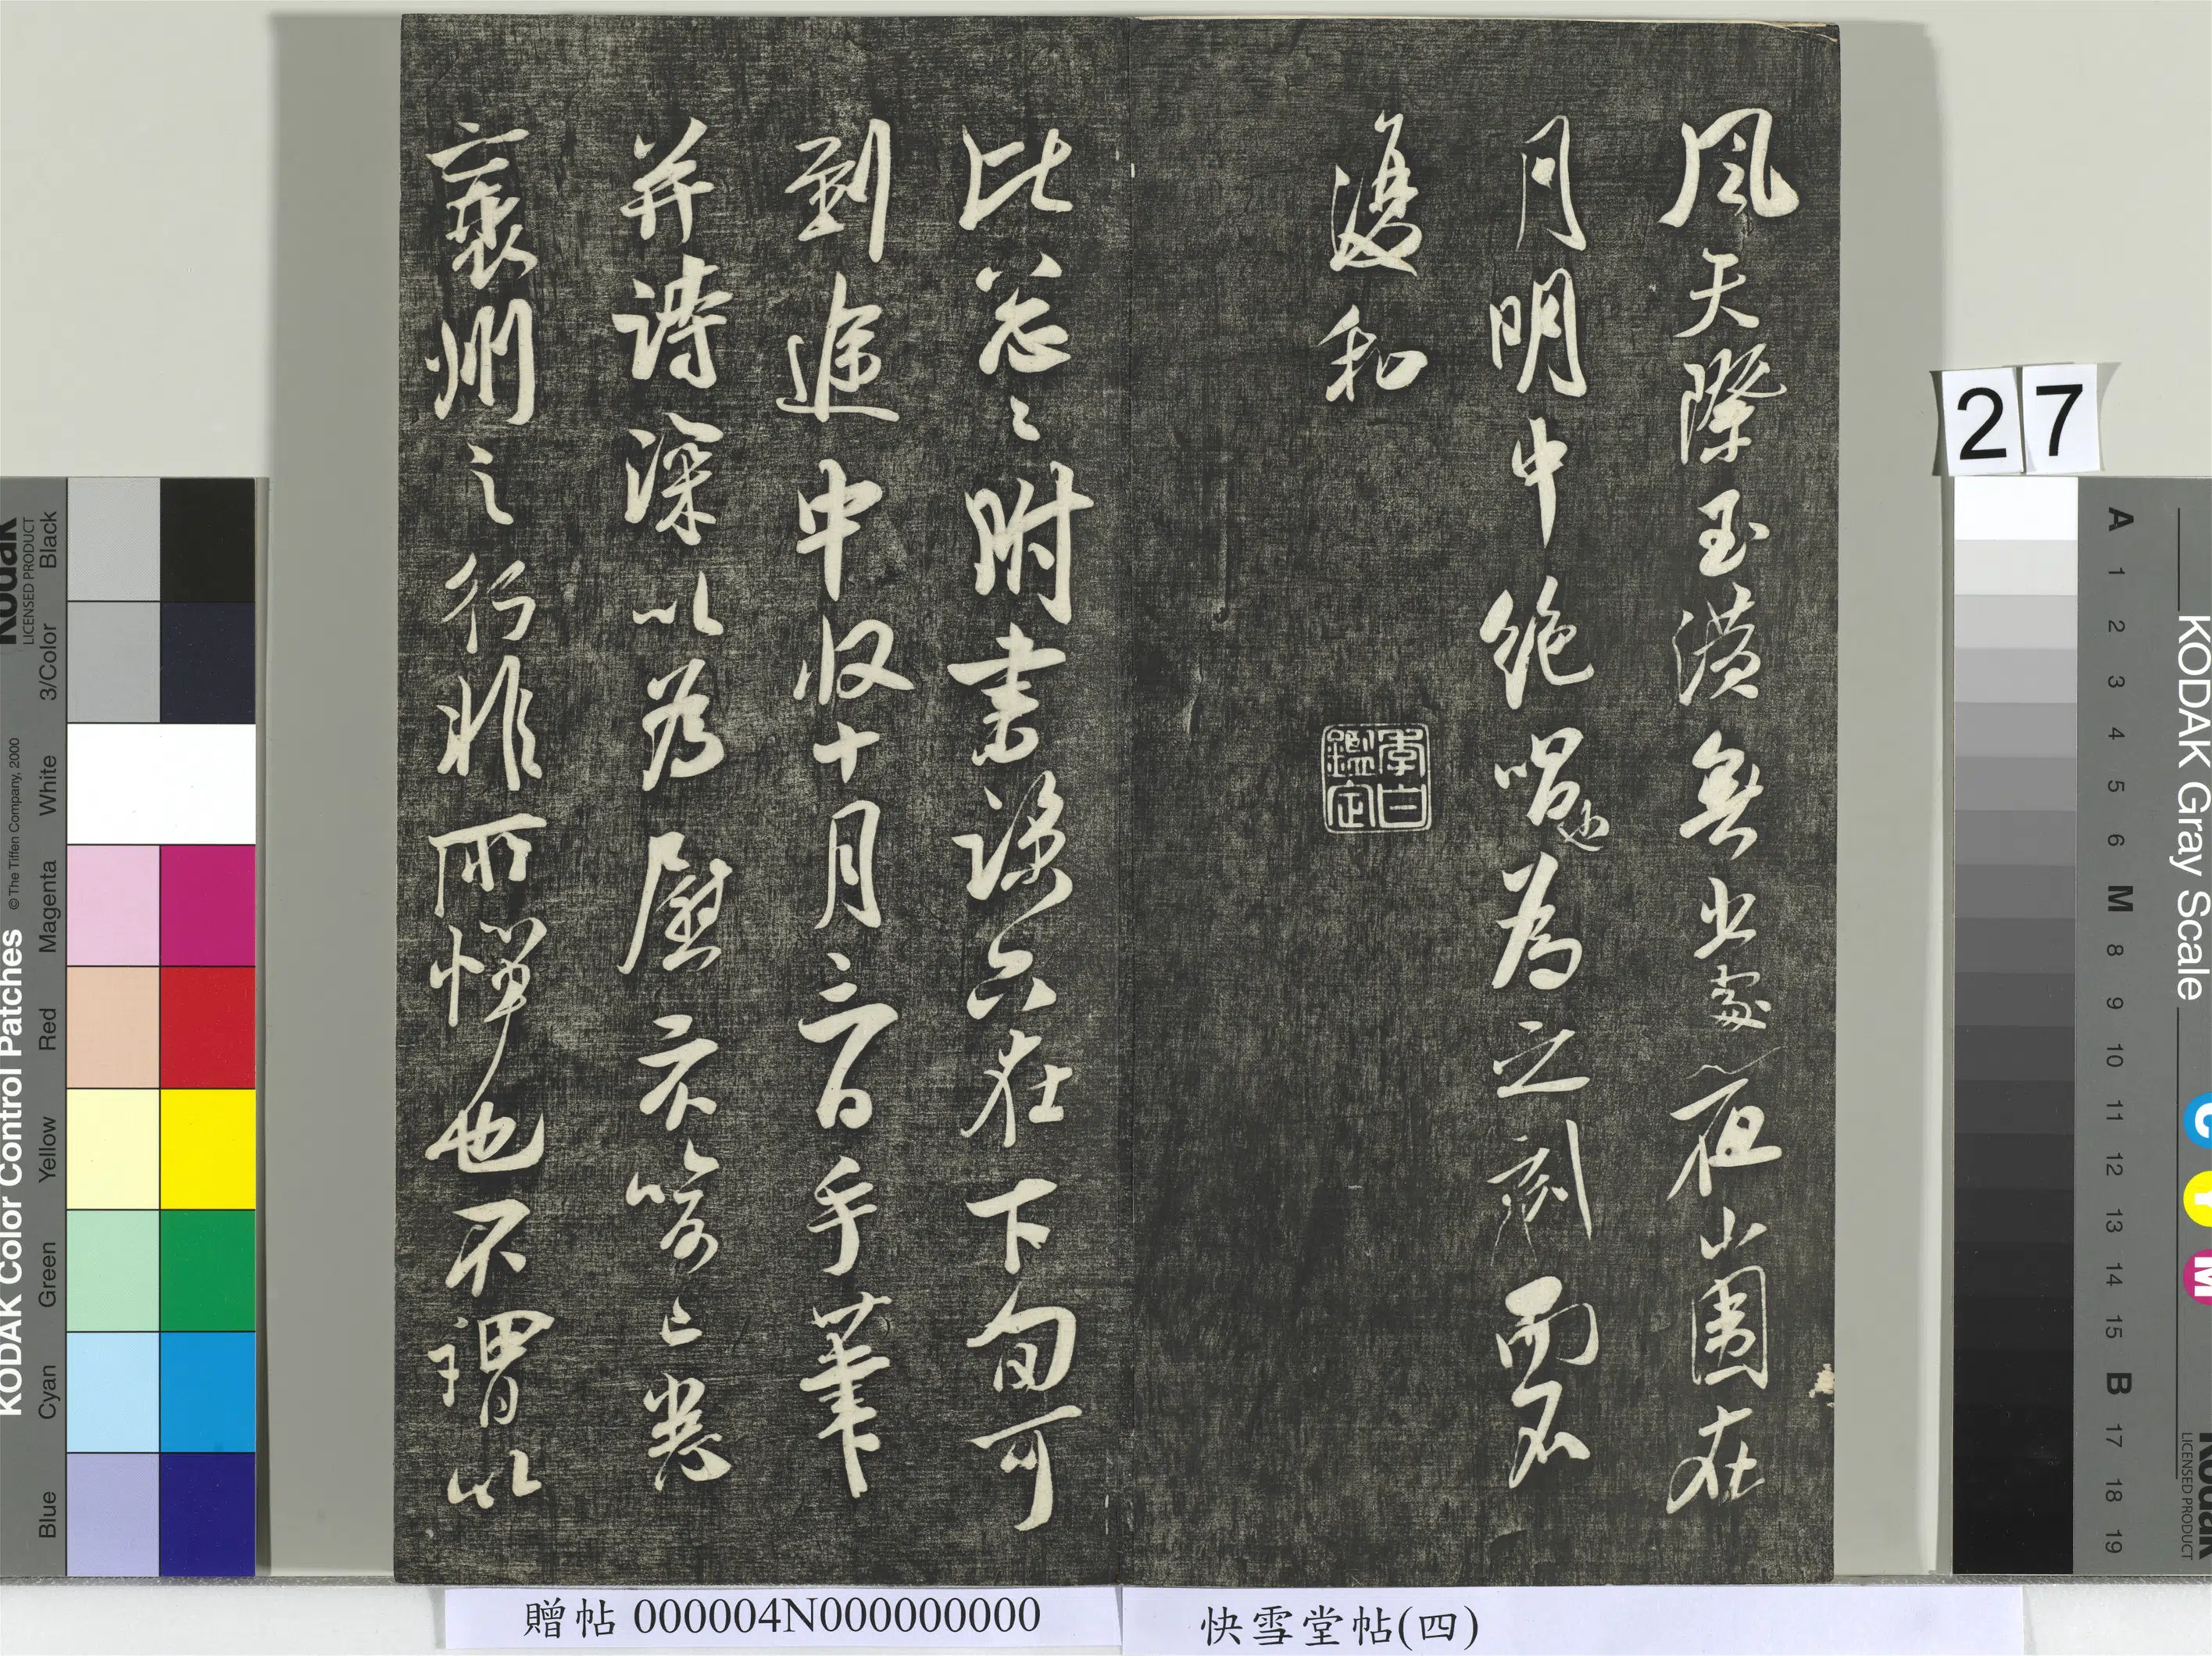 風天際玉潢無出處夜山圍在
月明中絕唱也為之刻而不
復和
李白鑑定
比忽〻附書諒只在下旬可
到途中收十月手筆
并詩深以為慰已悉
襄州之行非所憚也不謂以
27
贈帖 000004N000000000
快雪堂帖(四)
KODAK Color Control Patches
© The Tiffen Company, 2000
Kodak
LICENSED PRODUCT
Blue Cyan Green Yellow Red Magenta White 3/Color Black
KODAK Gray Scale
C Y M
Kodak
LICENSED PRODUCT
A 1 2 3 4 5 6 M 8 9 10 11 12 13 14 15 B 17 18 19